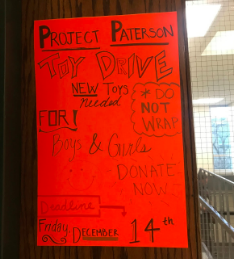 PROJECT PATERSON
TOY DRIVE
NEW Toys
Needed
* DO
NOT
WRAP
FOR!
Boys & Girls
DONATE
NOW
Deadline
Friday DECEMBER 14th